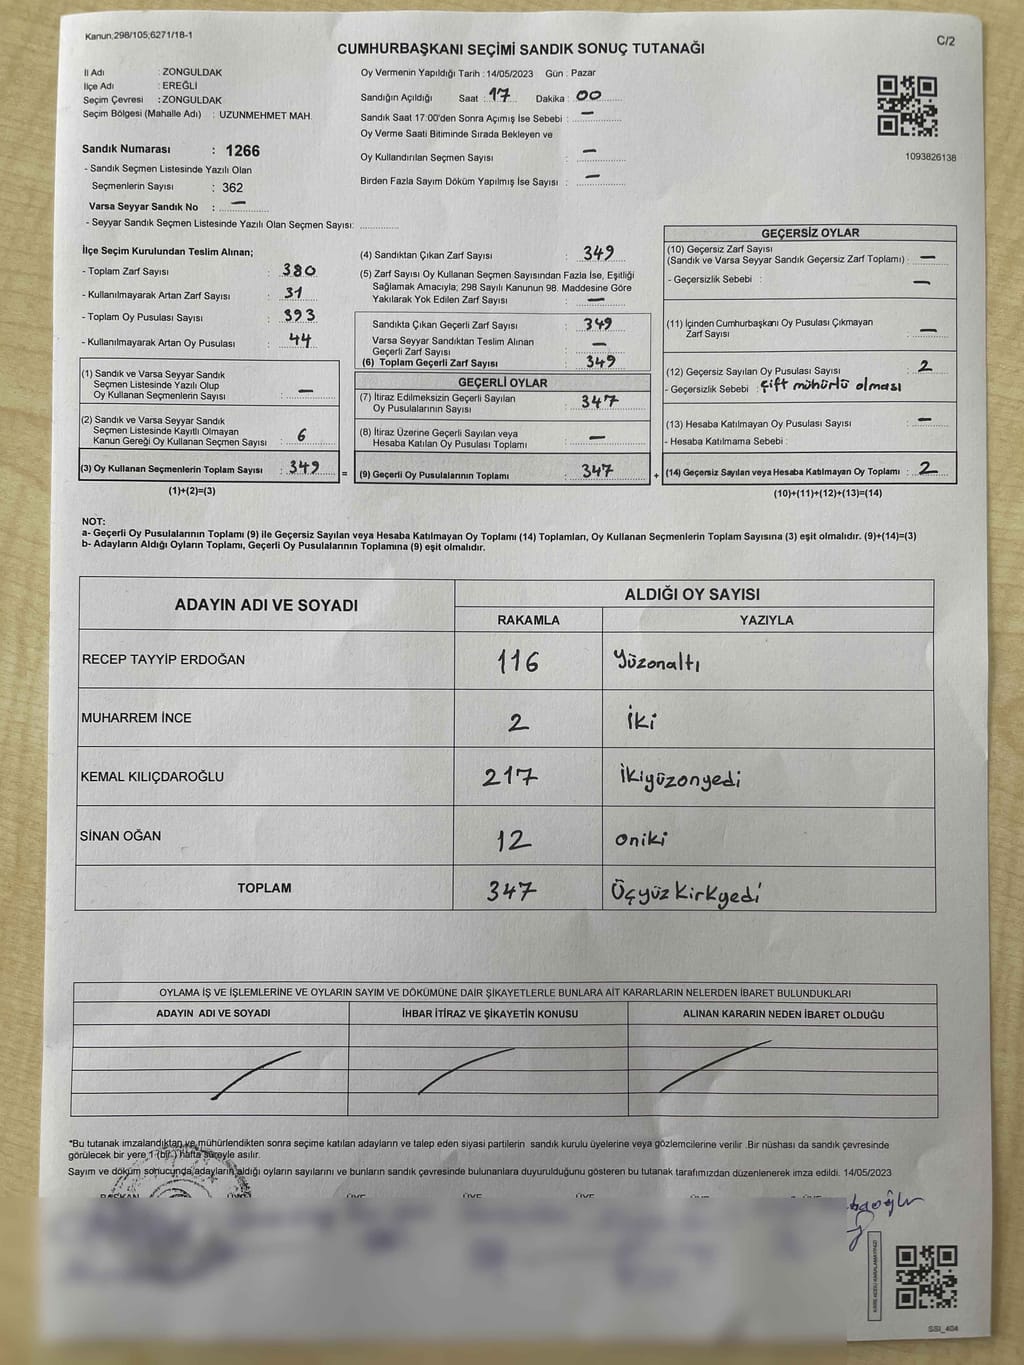 Kanun;298/105;6271/18-1
C/2
CUMHURBAŞKANI SEÇİMİ SANDIK SONUÇ TUTANAĞI
İl Adı : ZONGULDAK
İlçe Adı : EREĞLİ
Seçim Çevresi : ZONGULDAK
Seçim Bölgesi (Mahalle Adı) : UZUNMEHMET MAH.
Sandık Numarası : 1266
- Sandık Seçmen Listesinde Yazılı Olan
Seçmenlerin Sayısı : 362
Varsa Seyyar Sandık No : —
- Seyyar Sandık Seçmen Listesinde Yazılı Olan Seçmen Sayısı:
Oy Vermenin Yapıldığı Tarih : 14/05/2023 Gün : Pazar
Sandığın Açıldığı Saat : 17 Dakika : 00
Sandık Saat 17:00'den Sonra Açımış İse Sebebi : —
Oy Verme Saati Bitiminde Sırada Bekleyen ve
Oy Kullandırılan Seçmen Sayısı : —
Birden Fazla Sayım Döküm Yapılmış İse Sayısı : —
1093826138
İlçe Seçim Kurulundan Teslim Alınan;
- Toplam Zarf Sayısı : 380
- Kullanılmayarak Artan Zarf Sayısı : 31
- Toplam Oy Pusulası Sayısı : 393
- Kullanılmayarak Artan Oy Pusulası : 44
(1) Sandık ve Varsa Seyyar Sandık
Seçmen Listesinde Yazılı Olup
Oy Kullanan Seçmenlerin Sayısı : —
(2) Sandık ve Varsa Seyyar Sandık
Seçmen Listesinde Kayıtlı Olmayan
Kanun Gereği Oy Kullanan Seçmen Sayısı : 6
(3) Oy Kullanan Seçmenlerin Toplam Sayısı : 349 =
(1)+(2)=(3)
(4) Sandıktan Çıkan Zarf Sayısı : 349
(5) Zarf Sayısı Oy Kullanan Seçmen Sayısından Fazla İse, Eşitliği
Sağlamak Amacıyla; 298 Sayılı Kanunun 98. Maddesine Göre
Yakılarak Yok Edilen Zarf Sayısı : —
Sandıkta Çıkan Geçerli Zarf Sayısı : 349
Varsa Seyyar Sandıktan Teslim Alınan
Geçerli Zarf Sayısı : —
(6) Toplam Geçerli Zarf Sayısı : 349
GEÇERLİ OYLAR
(7) İtiraz Edilmeksizin Geçerli Sayılan
Oy Pusulalarının Sayısı : 347
(8) İtiraz Üzerine Geçerli Sayılan veya
Hesaba Katılan Oy Pusulası Toplamı : —
(9) Geçerli Oy Pusulalarının Toplamı : 347 +
GEÇERSİZ OYLAR
(10) Geçersiz Zarf Sayısı
(Sandık ve Varsa Seyyar Sandık Geçersiz Zarf Toplamı) : —
- Geçersizlik Sebebi : —
(11) İçinden Cumhurbaşkanı Oy Pusulası Çıkmayan
Zarf Sayısı : —
(12) Geçersiz Sayılan Oy Pusulası Sayısı : 2
- Geçersizlik Sebebi : Çift mühürlü olması
(13) Hesaba Katılmayan Oy Pusulası Sayısı : —
- Hesaba Katılmama Sebebi :
(14) Geçersiz Sayılan veya Hesaba Katılmayan Oy Toplamı : 2
(10)+(11)+(12)+(13)=(14)
NOT:
a- Geçerli Oy Pusulalarının Toplamı (9) ile Geçersiz Sayılan veya Hesaba Katılmayan Oy Toplamı (14) Toplamları, Oy Kullanan Seçmenlerin Toplam Sayısına (3) eşit olmalıdır. (9)+(14)=(3)
b- Adayların Aldığı Oyların Toplamı, Geçerli Oy Pusulalarının Toplamına (9) eşit olmalıdır.
ADAYIN ADI VE SOYADI
ALDIĞI OY SAYISI
RAKAMLA YAZIYLA
RECEP TAYYİP ERDOĞAN 116 Yüzonaltı
MUHARREM İNCE 2 İki
KEMAL KILIÇDAROĞLU 217 İkiyüzonyedi
SİNAN OĞAN 12 oniki
TOPLAM 347 Üçyüz Kirkyedi
OYLAMA İŞ VE İŞLEMLERİNE VE OYLARIN SAYIM VE DÖKÜMÜNE DAİR ŞİKAYETLERLE BUNLARA AİT KARARLARIN NELERDEN İBARET BULUNDUKLARI
ADAYIN ADI VE SOYADI İHBAR İTİRAZ VE ŞİKAYETİN KONUSU ALINAN KARARIN NEDEN İBARET OLDUĞU
*Bu tutanak imzalandıktan ve mühürlendikten sonra seçime katılan adayların ve talep eden siyasi partilerin sandık kurulu üyelerine veya gözlemcilerine verilir .Bir nüshası da sandık çevresinde
görülecek bir yere 1 (bir ) hafta süreyle asılır.
Sayım ve döküm sonucunda adayların aldığı oyların sayılarını ve bunların sandık çevresinde bulunanlara duyurulduğunu gösteren bu tutanak tarafımızdan düzenlenerek imza edildi. 14/05/2023
BAŞKAN ÜYE ÜYE ÜYE ÜYE
SSI_404